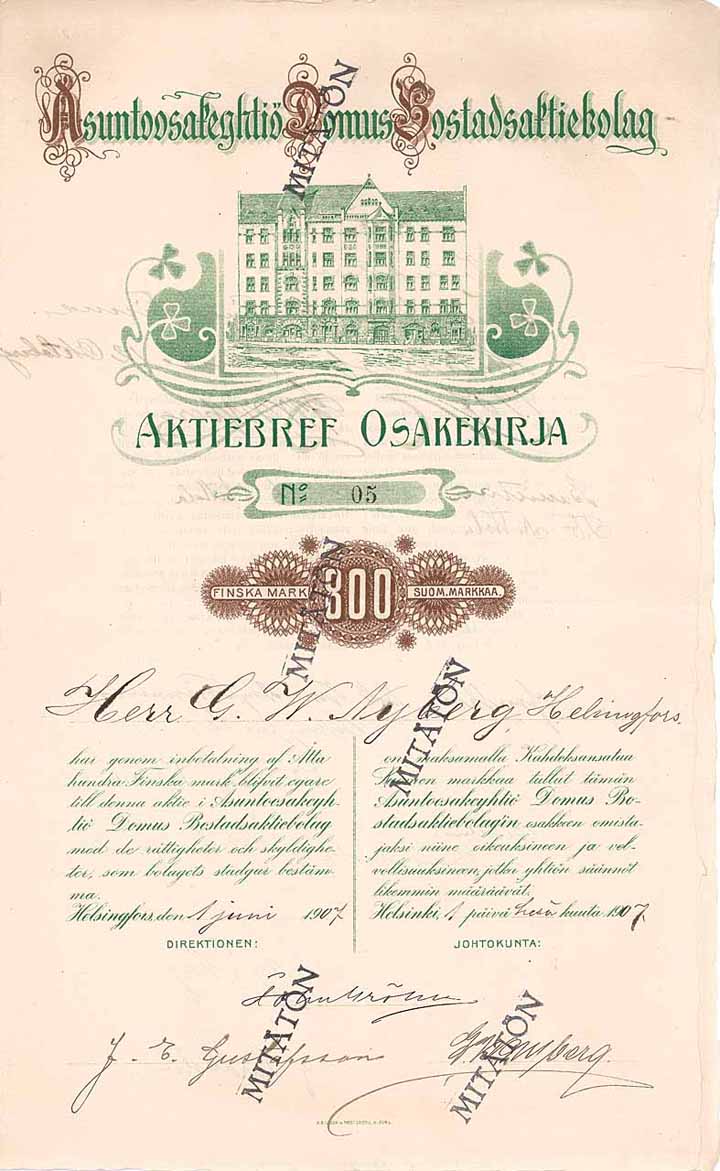 Asuntoosakeyhtiö Domus Bostadsaktiebolag
AKTIEBREF OSAKEKIRJA
No 05
FINSKA MARK 800 SUOM. MARKKAA.
Herr G. W. Nyberg, Helsingfors.
har genom inbetalning af Åtta
hundra Finska mark blifvit egare
till denna aktie i Asuntoosakeyh-
tiö Domus Bostadsaktiebolag
med de rättigheter och skyldighe-
ter, som bolagets stadgar bestäm-
ma.
Helsingfors, den 1 juni 1907
DIREKTIONEN:
on maksamalla Kahdeksansataa
Suomen markkaa tullut tämän
Asuntoosakeyhtiö Domus Bo-
stadsaktiebolagin osakkeen omista-
jaksi niine oikeuksineen ja vel-
vollisuuksineen, jotka yhtiön säännöt
likemmin määräävät.
Helsinki, 1 päivä kesä kuuta 1907
JOHTOKUNTA:
J. E. Gustafsson
G W Nyberg.
MITÄTÖN
MITÄTÖN
MITÄTÖN
MITÄTÖN
MITÄTÖN